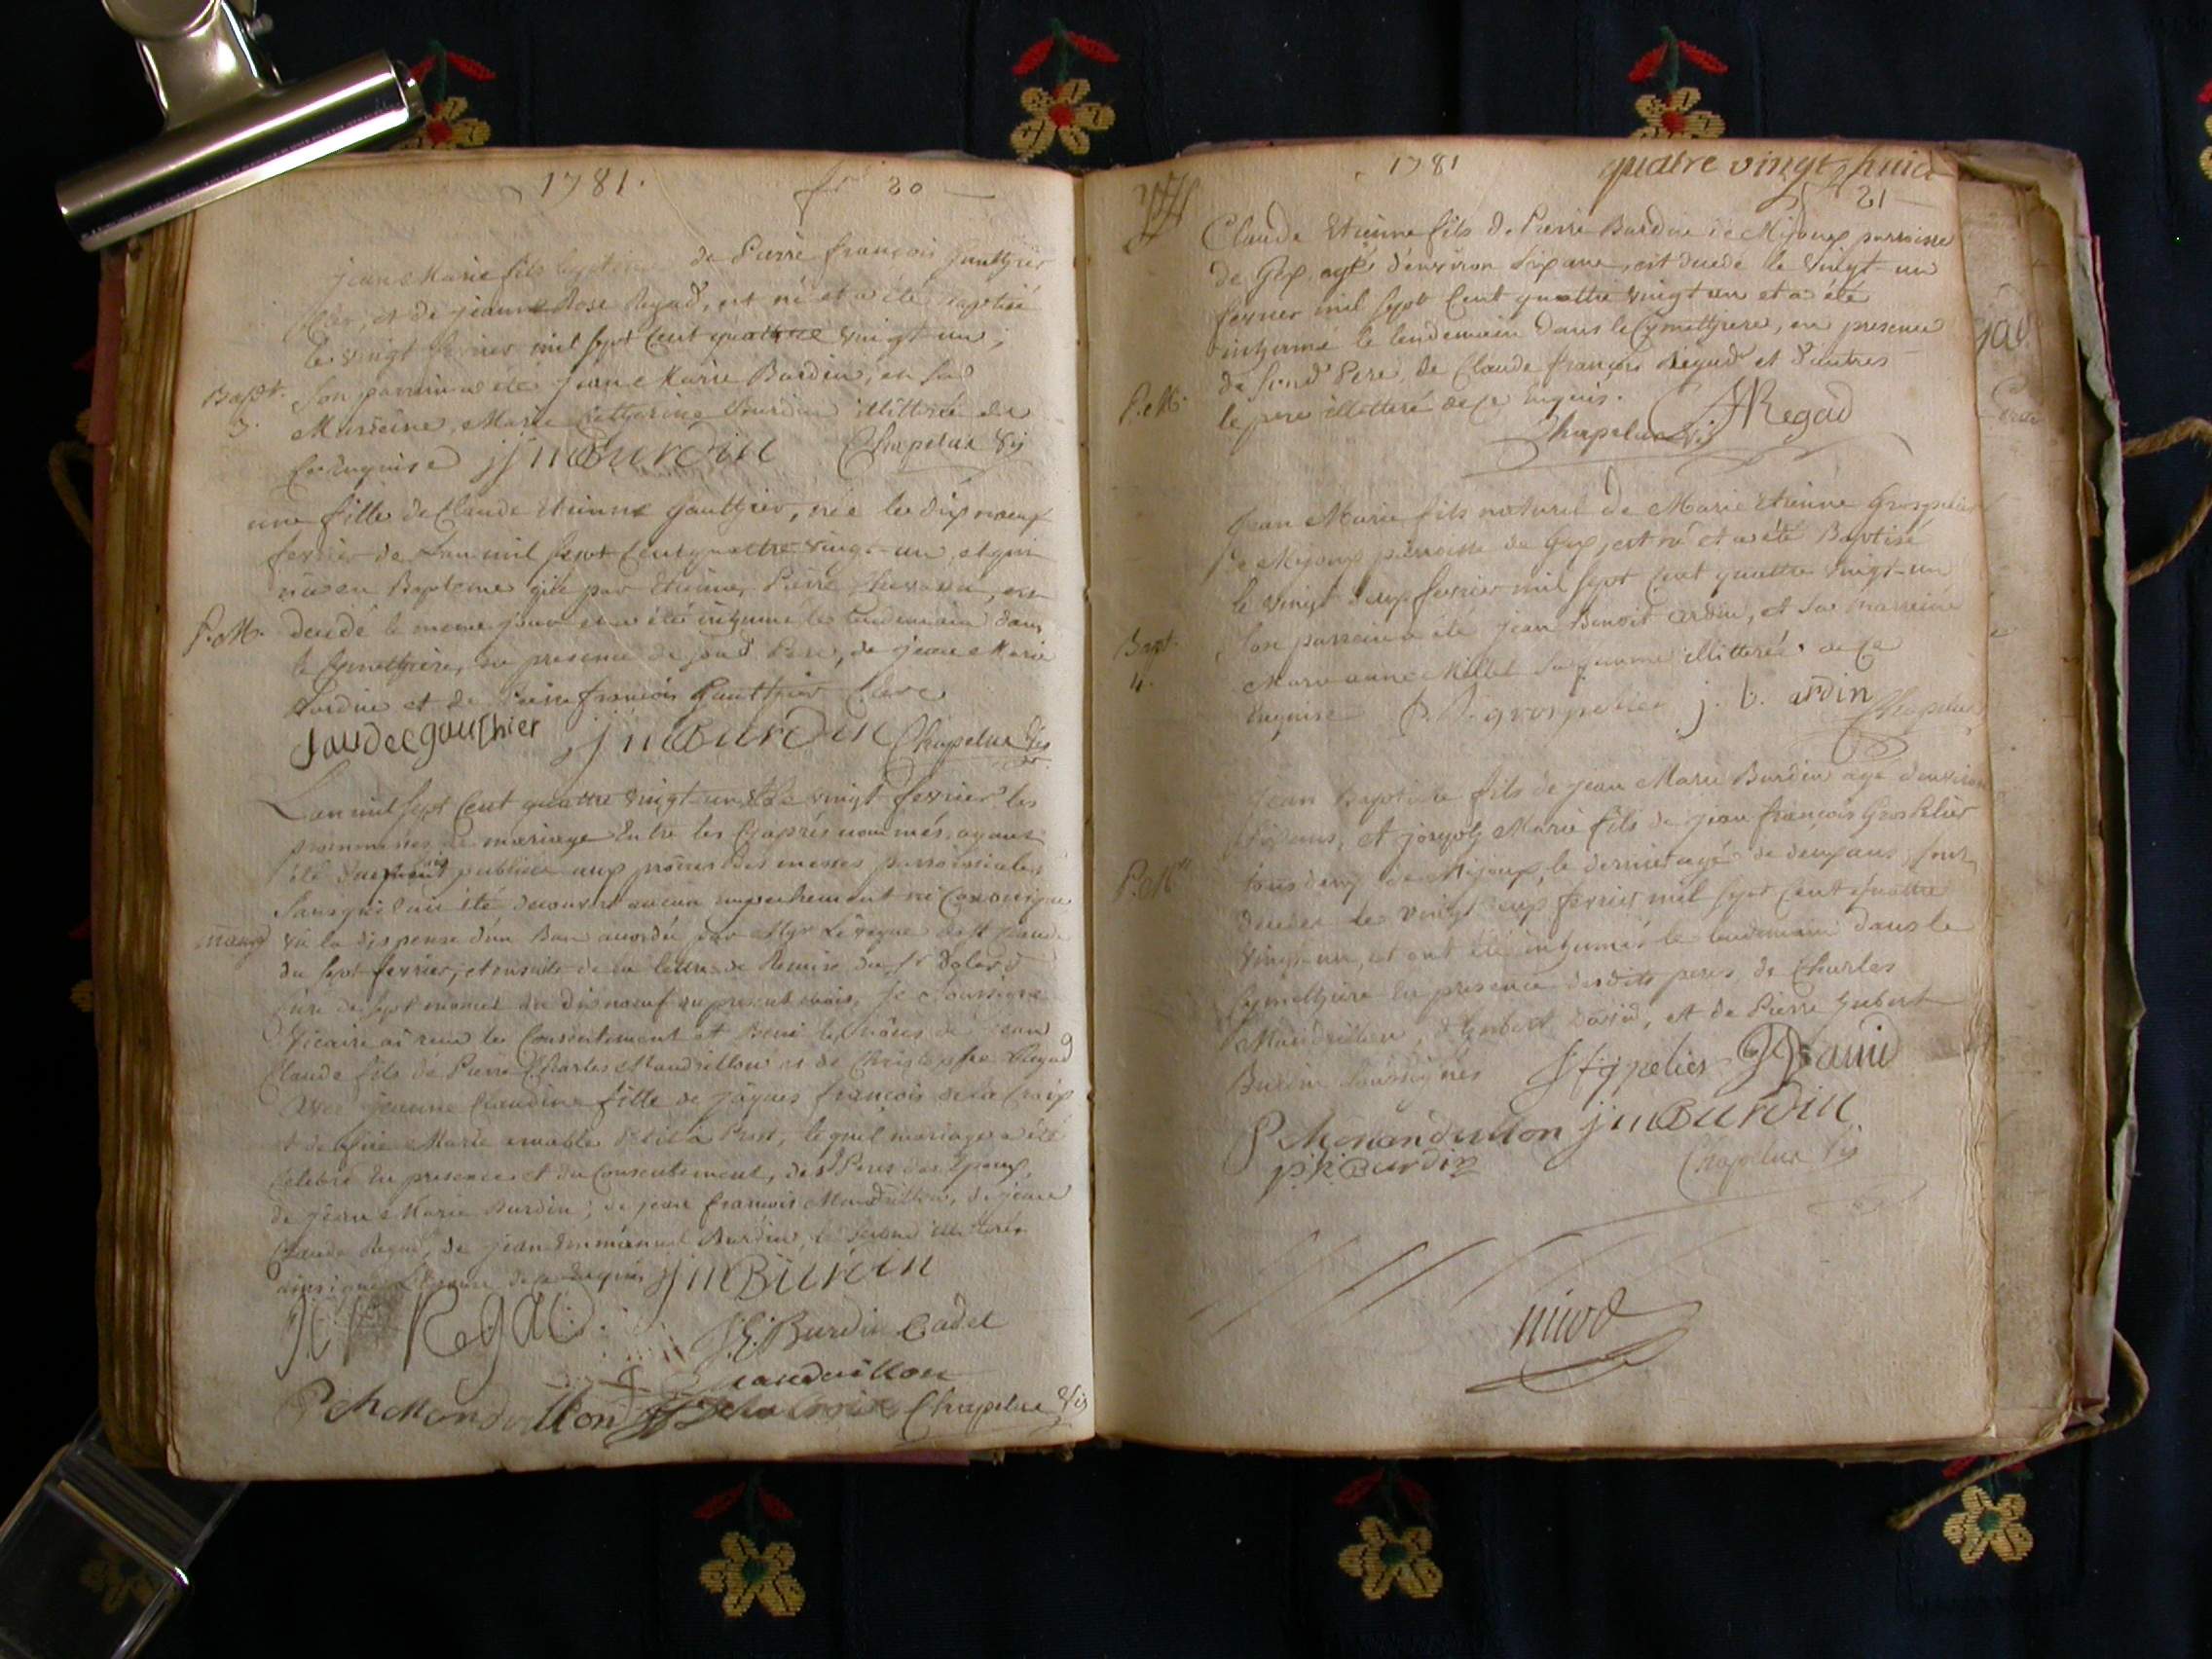 1781.
fo 20
jean Marie fils legitime de Pierre françois Gauthier
Clerc, et de jeanne Rose Regad, est né et a été Baptisé
le vingt fevrier mil sept Cent quattre vingt un;
Bapt. Son parrain a été jean Marie Burdin, et sa
3. Marreine, Marie Catherine Burdin illitterée de
Ce Enquise jmBurdin Chapelux Vic
une fille de Claude Etienne Gauthier, née le dix neuf
fevrier de L'an mil sept Cent quattre vingt-un, et qui
par Etienne Pierre
P.M. decedé le meme jour et a été inhumé le lendemain dans
le Cymetthiere, en presence de son d. Pere, de jean Marie
Burdin et de Pierre françois Gauthier Clerc
Claudeegauthier jmBurdin Chapelux Vic
L'an mil sept Cent quattre vingt-un et le vingt fevrier les
promesses de mariage Entre les Cy après nommés, ayant
été publiées aux prônes des messes parroissiales
Sans qu'il ait été decouvert aucun empechement ni Canonique
vu la dispense d'un Ban accordée par Mgr L'Evêque de St Claude
du sept fevrier, et ensuite de la lettre de Remise du Sr
Curé de sept moncel du dix neuf du present mois, Je Soussigné
Vicaire ai reçu le Consentement et Beni les nôces de jean
Claude fils de Pierre Charles Mandrillon et de Christophe Regad
avec jeanne Claudine fille de jâques françois de la Croix
et de Marie amable Prost, lequel mariage a été
Celebré en presence et du Consentement, des d. Peres des Epoux,
de jean Marie Burdin, de jean françois Mandrillon, de jean
Claude Regad, de jean Emmanuel Burdin, le second illitteré
de ce Enquis jmBurdin
Regad
J.E. Burdin Cadet
Mandrillon
PchMandrillon De la Croix Chapelux Vic
1781
quatre vingt huit
fo 21
Claude Etienne fils de Pierre Burdin de Mijoux parroisse
de Gex, agé d'environ six ans, est decedé le vingt-un
fevrier mil sept Cent quattre vingt un et a été
inhumé le lendemain dans le Cymetthiere, en presence
de son d. Pere, de Claude françois Regad et d'autres
P.M. le pere illitteré de ce Enquis. Regad
Chapelux Vic
Jean Marie fils naturel de Marie Etienne Grospelier
de Mijoux parroisse de Gex, est né et a été Baptisé
le vingt deux fevrier mil sept Cent quattre vingt-un
Bapt. Son parrain a été jean Benoit Ardin, et sa marreine
4. Marie anne Millet sa femme illitterée de ce
Enquise grospelier j. b. ardin
Chapelux
Jean Baptiste fils de jean Marie Burdin agé d'environ
six ans, et joseph Marie fils de jean françois Gros Pelier
P.M. tous deux de Mijoux, le dernier agé de deux ans, sont
decedés le vingt deux fevrier mil sept Cent quattre
vingt-un, et ont été inhumés le lendemain dans le
Cymetthiere en presence desdits peres, de Charles
Mandrillon, d'humbert David, et de Pierre humbert
Burdin Soussignés
David
PchMandrillon jmBurdin
p.h. Burdin Chapelux Vic